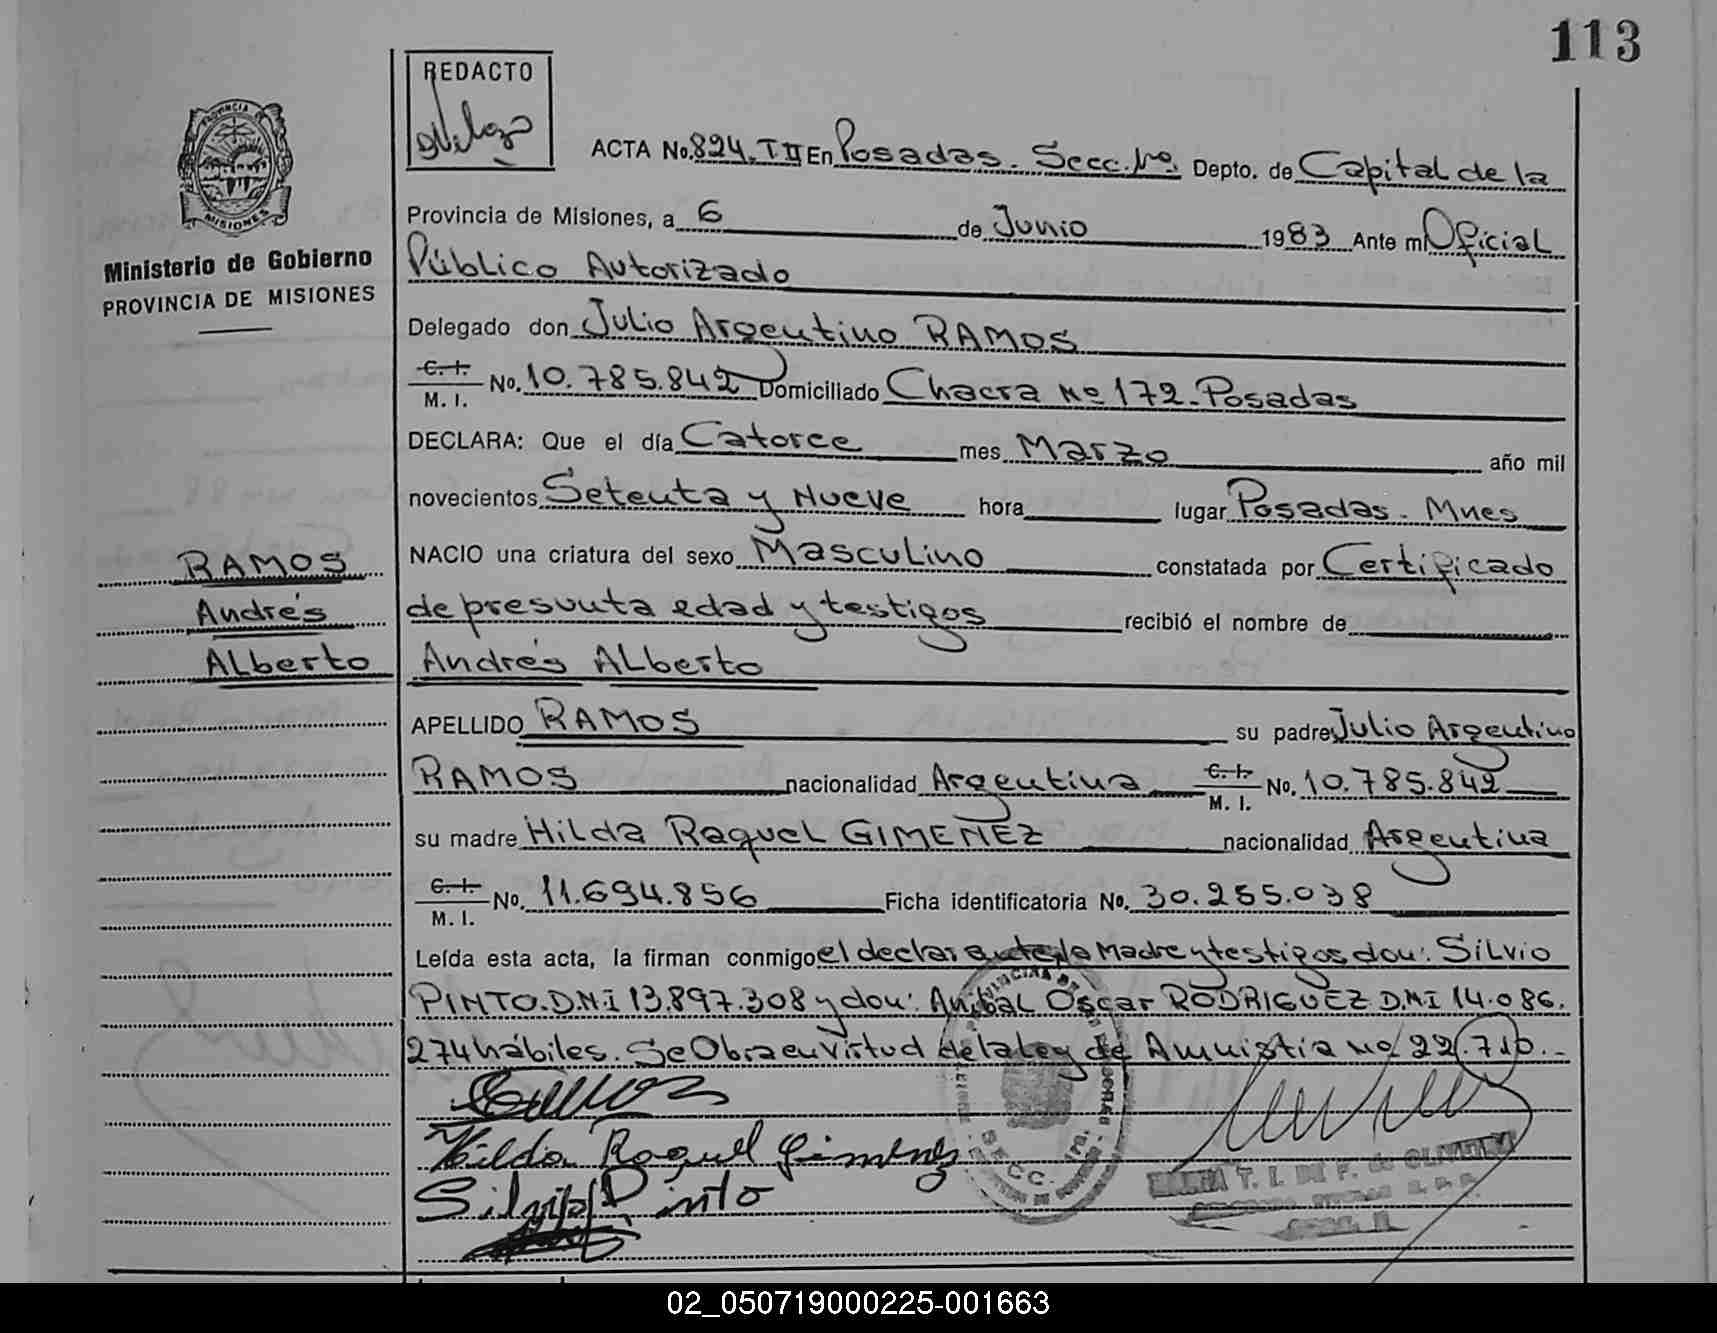 113
REDACTO
PROVINCIA DE
MISIONES
Ministerio de Gobierno
PROVINCIA DE MISIONES
ACTA No. 824. T II En Posadas. Secc. 1º. Depto. de Capital de la
Provincia de Misiones, a 6 de Junio 1983 Ante mi Oficial
Público Autorizado
Delegado don Julio Argentino RAMOS
C. I.
M. I. No. 10.785.842 Domiciliado Chacra Nº 172. Posadas
DECLARA: Que el día Catorce mes Marzo año mil
novecientos Setenta y Nueve hora lugar Posadas. Mnes
NACIO una criatura del sexo Masculino constatada por Certificado
de presunta edad y testigos recibió el nombre de
Andrés Alberto
RAMOS
Andrés
Alberto
APELLIDO RAMOS su padre Julio Argentino
RAMOS nacionalidad Argentina C. I.
M. I. No. 10.785.842
su madre Hilda Raquel GIMENEZ nacionalidad Argentina
C. I.
M. I. No. 11.694.856 Ficha identificatoria No. 30.255.038
Leída esta acta, la firman conmigo el declarante, la Madre y testigos don: Silvio
PINTO. D.N.I 13.897.308 y don: Anibal Oscar RODRIGUEZ D.N.I 14.086.
274 hábiles. Se Obra en Virtud de la Ley de Amnistia Nº 22.710.-
Hilda Raquel Gimenez
Silvio Pinto
SECC. 1ª
T. I. DE F. de OLIVEIRA
02_050719000225-001663